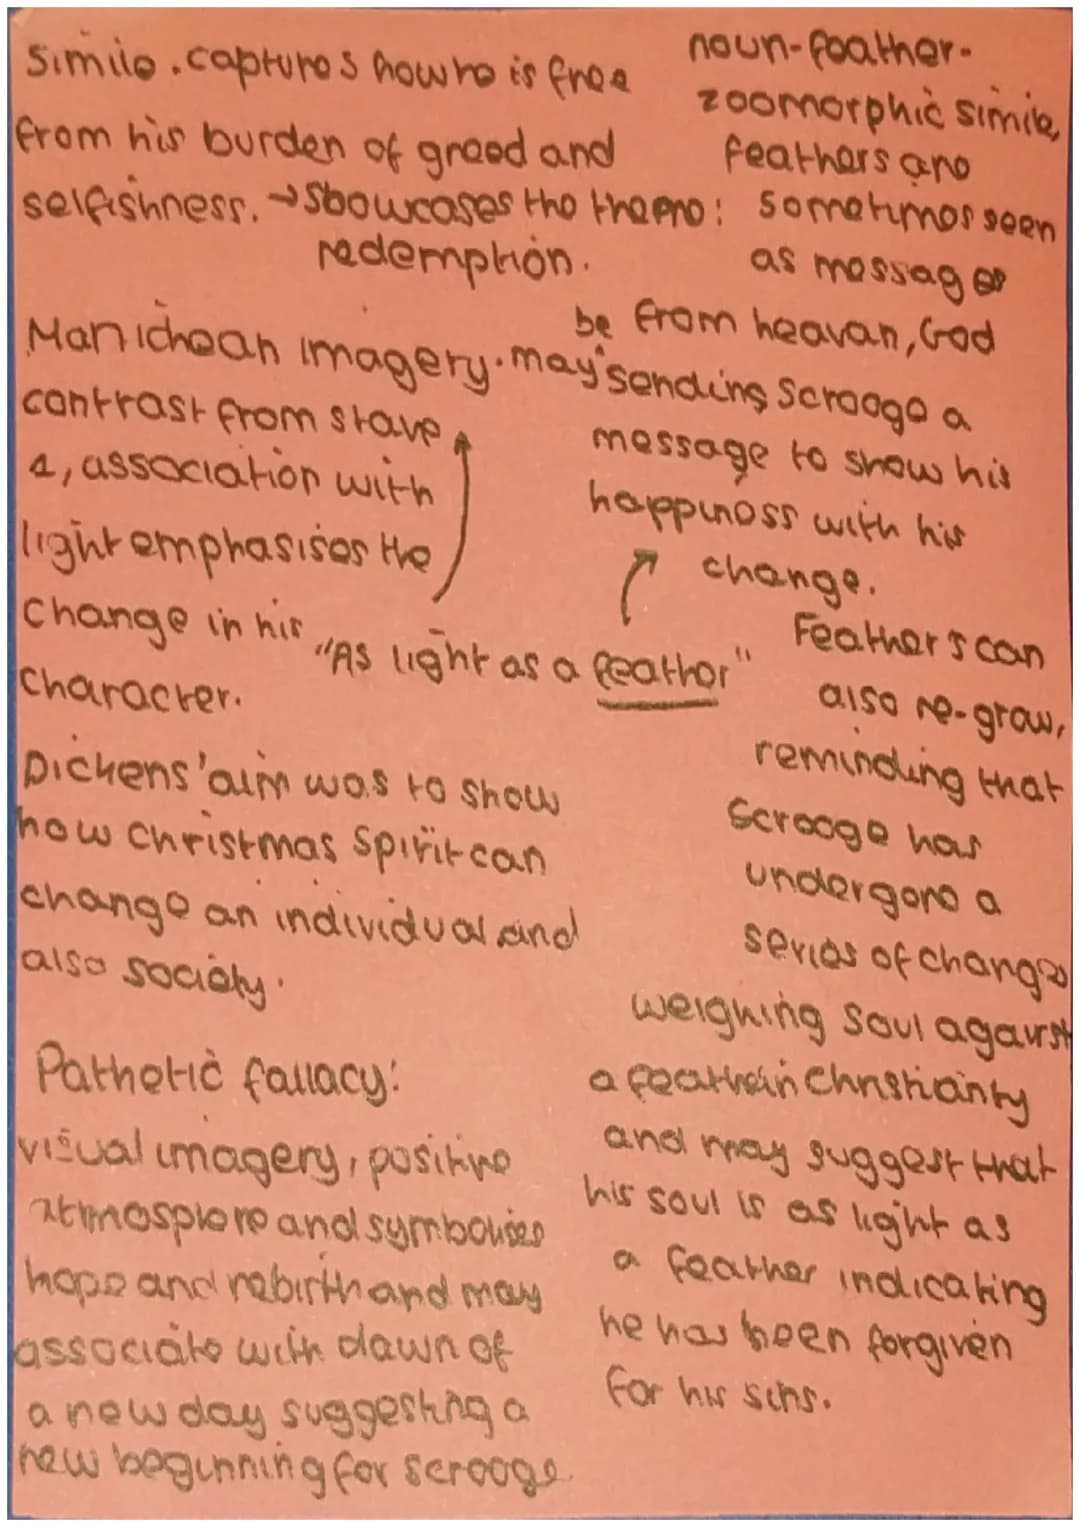 simile. captures how he is free
from his burden of greed and
selfishness. → Showcases the theme:
redemption.
Manichean imagery. may be
contrast from stave
1, association with
light emphasises the
change in his
character.
"As light as a feather"
Dickens' aim was to show
how Christmas Spirit can
change an individual and
also society.
Pathetic fallacy:
visual imagery, positive
atmosphere and symbolises
hope and rebirth and may
associate with dawn of
a new day suggesting a
new beginning for scrooge
noun-feather-
zoomorphic simile,
feathers are
sometimes seen
as messages
from heavan, God
sending Scrooge a
message to show his
happiness with his
change.
Feather's can
also re-grow,
reminding that
Scrooge has
undergone a
series of changes
weighing soul against
a feather in Christianity
and may suggest that
his soul is as light as
a feather indicating
he has been forgiven
for his sins.